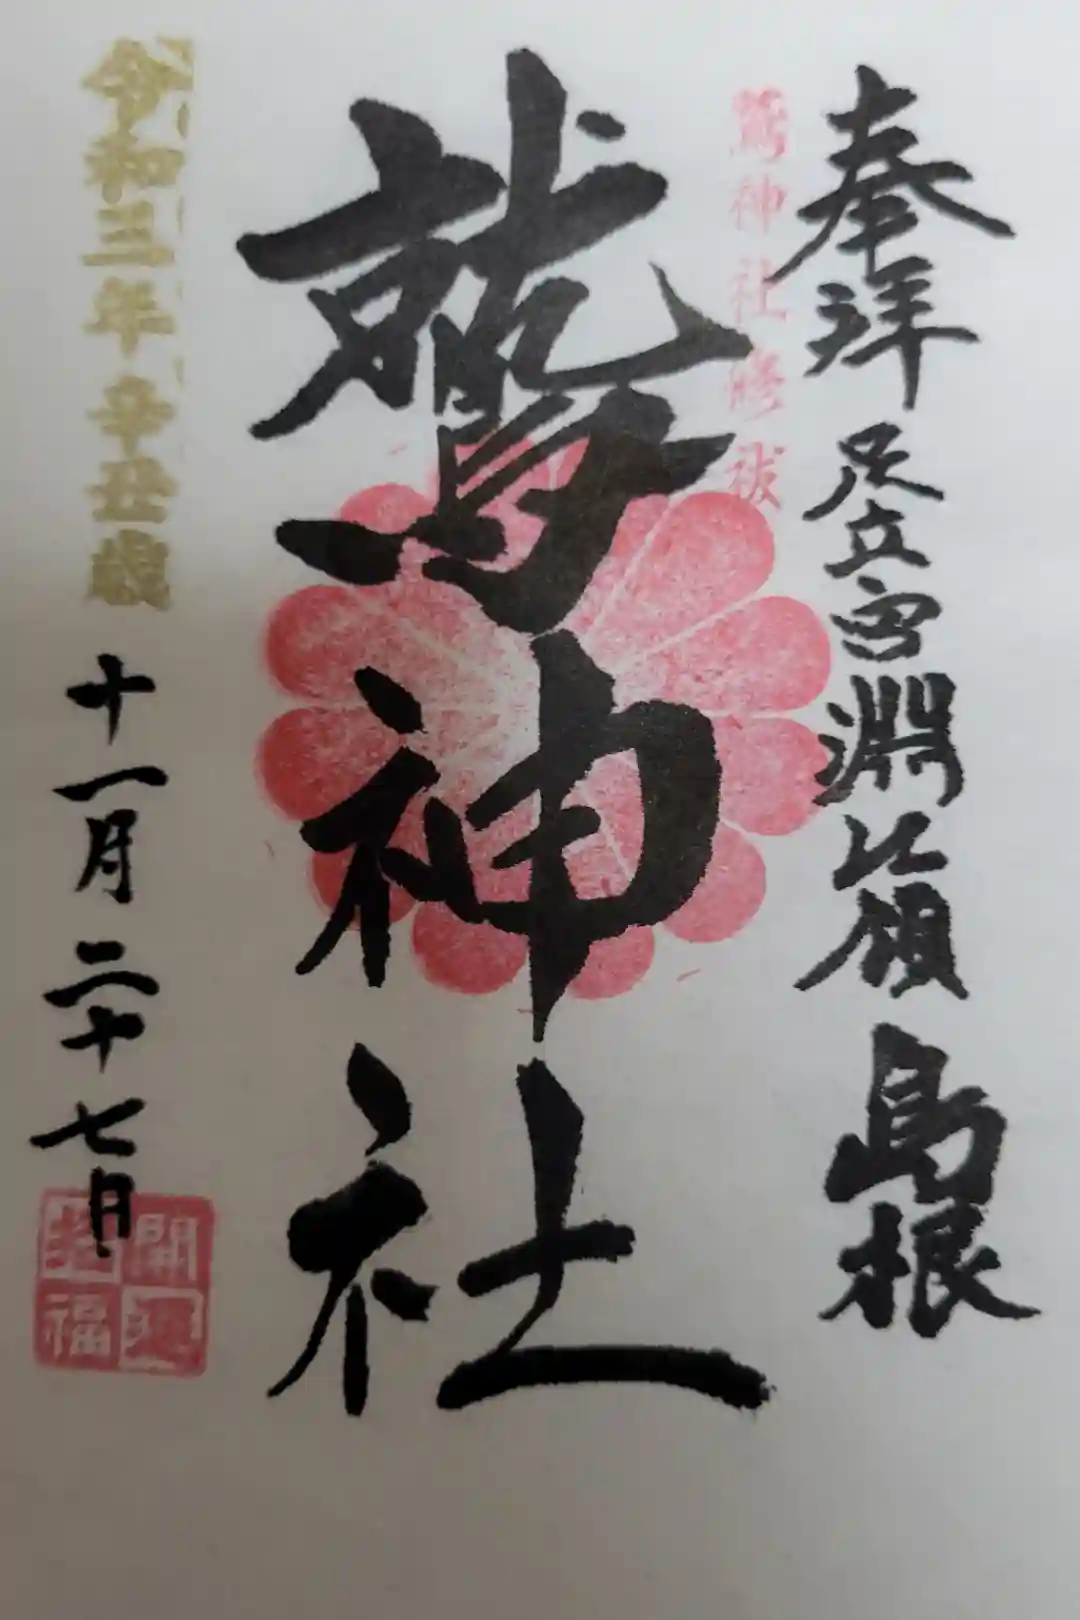 奉拝 足立宮淵比領 島根
鷲神社修祓
鷲神社
令和三年 辛丑歳 十一月二十七日
開運
招福